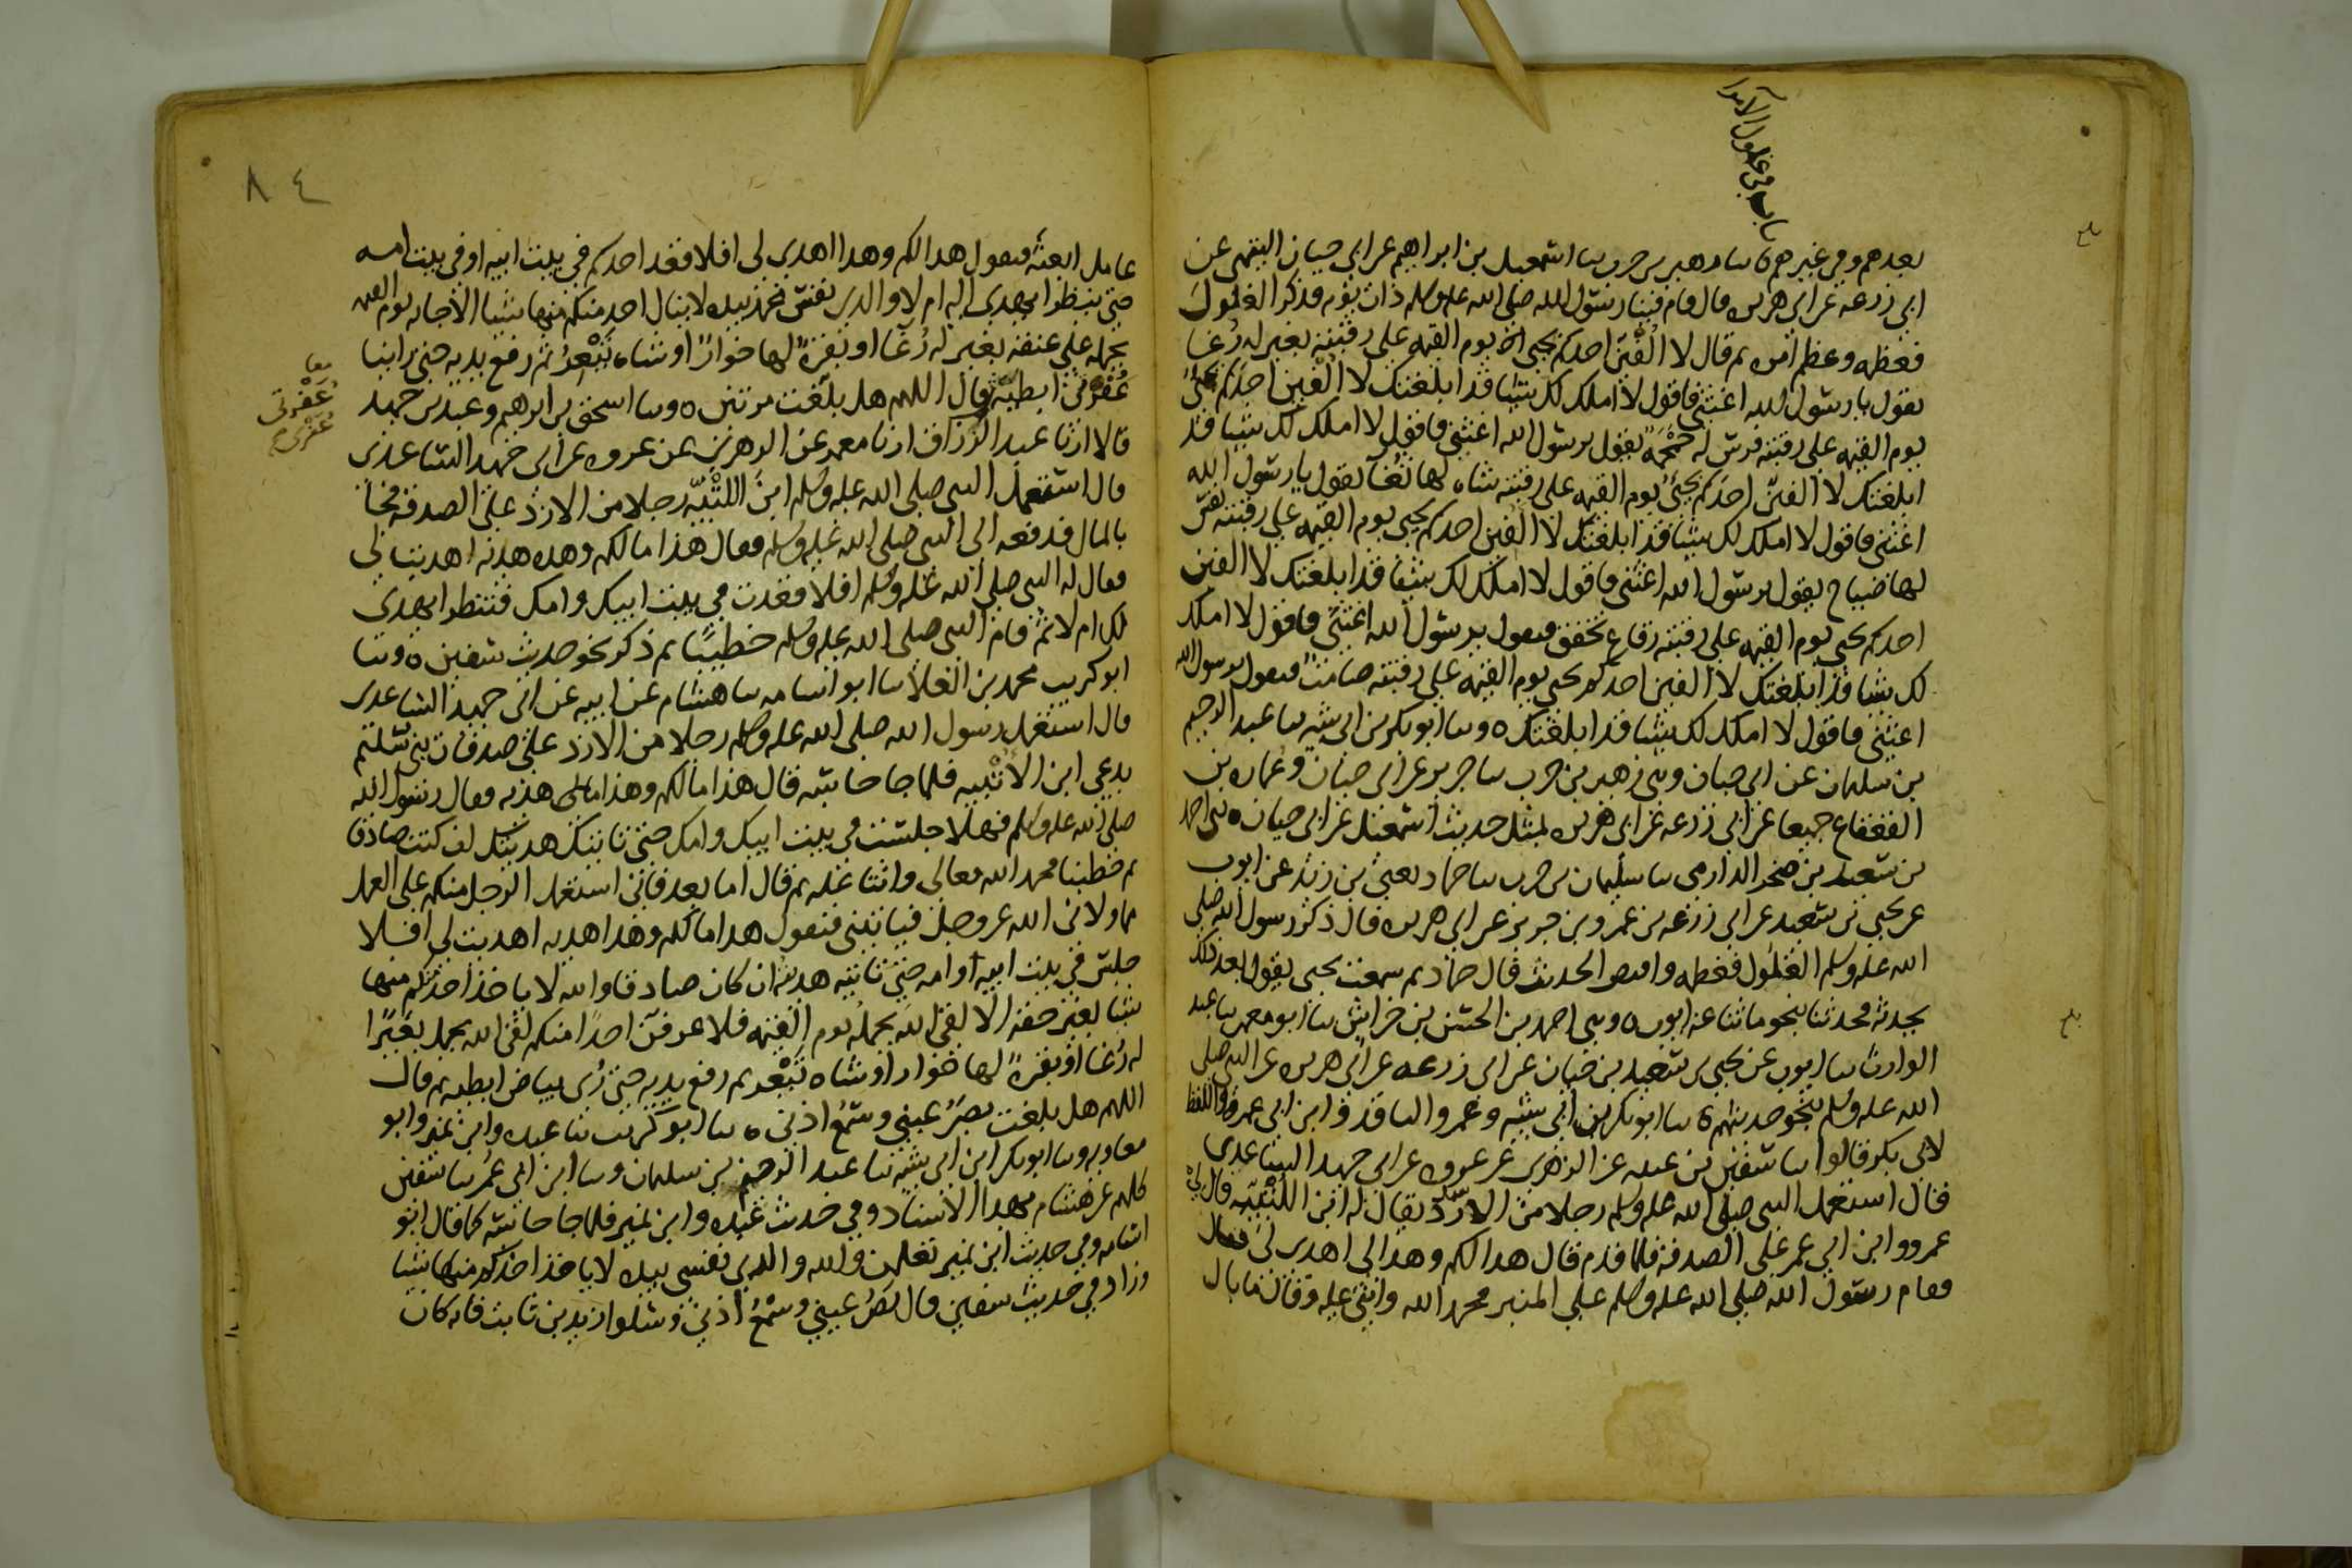 باب في غلول الامرا
بعدهم وفي غيرهم ٥ سا زهير بن حرب سا اسمعيل بن ابراهيم عن ابي حيان التيمي عن
ابي زرعه عن ابي هريره قال قام فينا رسول الله صلى الله عليه وسلم ذات يوم فذكر الغلول
فعظمه وعظم امره ثم قال لا الفين احدكم يجي يوم القيمه على رقبته بعير له رغا
يقول يا رسول الله اغثني فاقول لا املك لك شيا قد ابلغتك لا الفين احدكم يجئ
يوم القيمه على رقبته فرس له حمحمه يقول يرسول الله اغثني فاقول لا املك لك شيا قد
ابلغتك لا الفين احدكم يجئ يوم القيمه على رقبته شاه لها ثغا يقول يا رسول الله
اغثني فاقول لا املك لك شيا قد ابلغتك لا الفين احدكم يجي يوم القيمه على رقبته نفس
لها صياح يقول يرسول الله اغثني فاقول لا املك لك شيا قد ابلغتك لا الفين
احدكم يجي يوم القيمه على رقبته رقاع تخفق فيقول يرسول الله اغثني فاقول لا املك
لك شيا قد ابلغتك لا الفين احدكم يجي يوم القيمه على رقبته صامت فيقول يرسول الله
اغثني فاقول لا املك لك شيا قد ابلغتك ٥ وسا ابو بكر بن ابي شيبه سا عبد الرحيم
بن سليمان عن ابي حيان وني زهير بن حرب سا جرير عن ابي حيان وعماره بن
القعقاع جميعا عن ابي زرعه عن ابي هريره بمثل حديث اسمعيل عن ابي حيان ٥ ني احمد
بن سعيد بن صخر الدارمي سا سليمان بن حرب سا حماد يعني بن زيد عن ايوب
عن يحيى بن سعيد عن ابي زرعه بن عمرو بن جرير عن ابي هريره قال ذكر رسول الله صلى
الله عليه وسلم الغلول فعظمه واقتص الحديث قال حماد ثم سمعت يحيى يقول بعد ذلك
يحدثه فحدثنا بنحو ما ثنا عنه ايوب ٥ وني احمد بن الحسن بن خراش سا ابو معمر سا عبد
الوارث سا ايوب عن يحيى بن سعيد بن حيان عن ابي زرعه عن ابي هريره عن النبي صلى
الله عليه وسلم بنحو حديثهم ٥ سا ابو بكر بن ابي شيبه وعمرو الناقد وابن ابي عمر واللفظ
لابي بكر قالوا سا سفين بن عيينه عن الزهري عن عروه عن ابي حميد الساعدي
قال استعمل النبي صلى الله عليه وسلم رجلا من الازد يقال له ابن اللتبيه قال
عمرو وابن ابي عمر على الصدقه فلما قدم قال هذا لكم وهذا لي اهدي لي فقال
فقام رسول الله صلى الله عليه وسلم على المنبر فحمد الله واثنى عليه وقال ما بال
٨٤
عامل ابعثه فيقول هذا لكم وهذا اهدي لي افلا قعد احدكم في بيت ابيه او في بيت امه
حتى ينظر ايهدى اليه ام لا والذي نفس محمد بيده لا ينال احد منكم منها شيا الا جا به يوم القيمه
يحمله على عنقه بعير له رغا او بقرة لها خوار او شاه تيعر ثم رفع يديه حتى راينا
عفرتي ابطيه وقال اللهم هل بلغت مرتين ٥ وسا اسحق بن ابرهيم وعبد بن حميد
معا
عَفْرتى
عُفرتي
قالا ارنا عبد الرزاق ارنا معمر عن الزهري عن عروه عن ابي حميد الساعدي
قال استعمل النبي صلى الله عليه وسلم ابن اللتبيه رجلا من الازد على الصدقه فجا
بالمال فدفعه الى النبي صلى الله عليه وسلم فقال هذا مالكم وهذه هديه اهديت لي
فقال له النبي صلى الله عليه وسلم افلا قعدت في بيت ابيك وامك فتنظر ايهدى
لك ام لا ثم قام النبي صلى الله عليه وسلم خطيبا ثم ذكر نحو حديث سفين ٥ وثنا
ابو كريب محمد بن العلا سا ابو اسامه سا هشام عن ابيه عن ابي حميد الساعدي
قال استعمل رسول الله صلى الله عليه وسلم رجلا من الازد على صدقات بني سليم
يدعى ابن الاتبيه فلما جا حاسبه قال هذا مالكم وهذا هديه فقال رسول الله
صلى الله عليه وسلم فهلا جلست في بيت ابيك وامك حتى تاتيك هديتك ان كنت صادقا
ثم خطبنا فحمد الله تعالى واثنى عليه ثم قال اما بعد فاني استعمل الرجل منكم على العمل
مما ولاني الله عز وجل فياتيني فيقول هذا مالكم وهذا هديه اهديت لي افلا
جلس في بيت ابيه او امه حتى تاتيه هديته ان كان صادقا والله لا ياخذ احد منكم منها
شيا بغير حقه الا لقي الله يحمله يوم القيمه فلا عرفن احدا منكم لقي الله يحمل بعيرا
له رغا او بقرة لها خوار او شاه تيعر ثم رفع يديه حتى رُى بياض ابطيه ثم قال
اللهم هل بلغت بصر عيني وسمع اذني ٥ سا ابو كريب ثنا عبده وابن نمير وابو
معاويه وسا ابو بكر ابن ابي شيبه ثنا عبد الرحيم بن سليمان وسا ابن ابي عمر سا سفين
كلهم عن هشام بهذا الاسناد وفي حديث عبده وابن نمير فلما جا حاسبه كما قال ابو
اسامه وفي حديث ابن نمير تعلمن والله والذي نفسي بيده لا ياخذ احدكم منها شيا
وزاد في حديث سفين قال بصر عيني وسمع اذني وسلوا زيد بن ثابت فانه كان